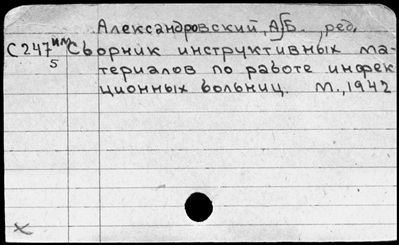 Александровский, А.Б., ред.
С247им Сборник инструктивных ма-
5 териалов по работе инфек
ционных больниц. М., 1942
х